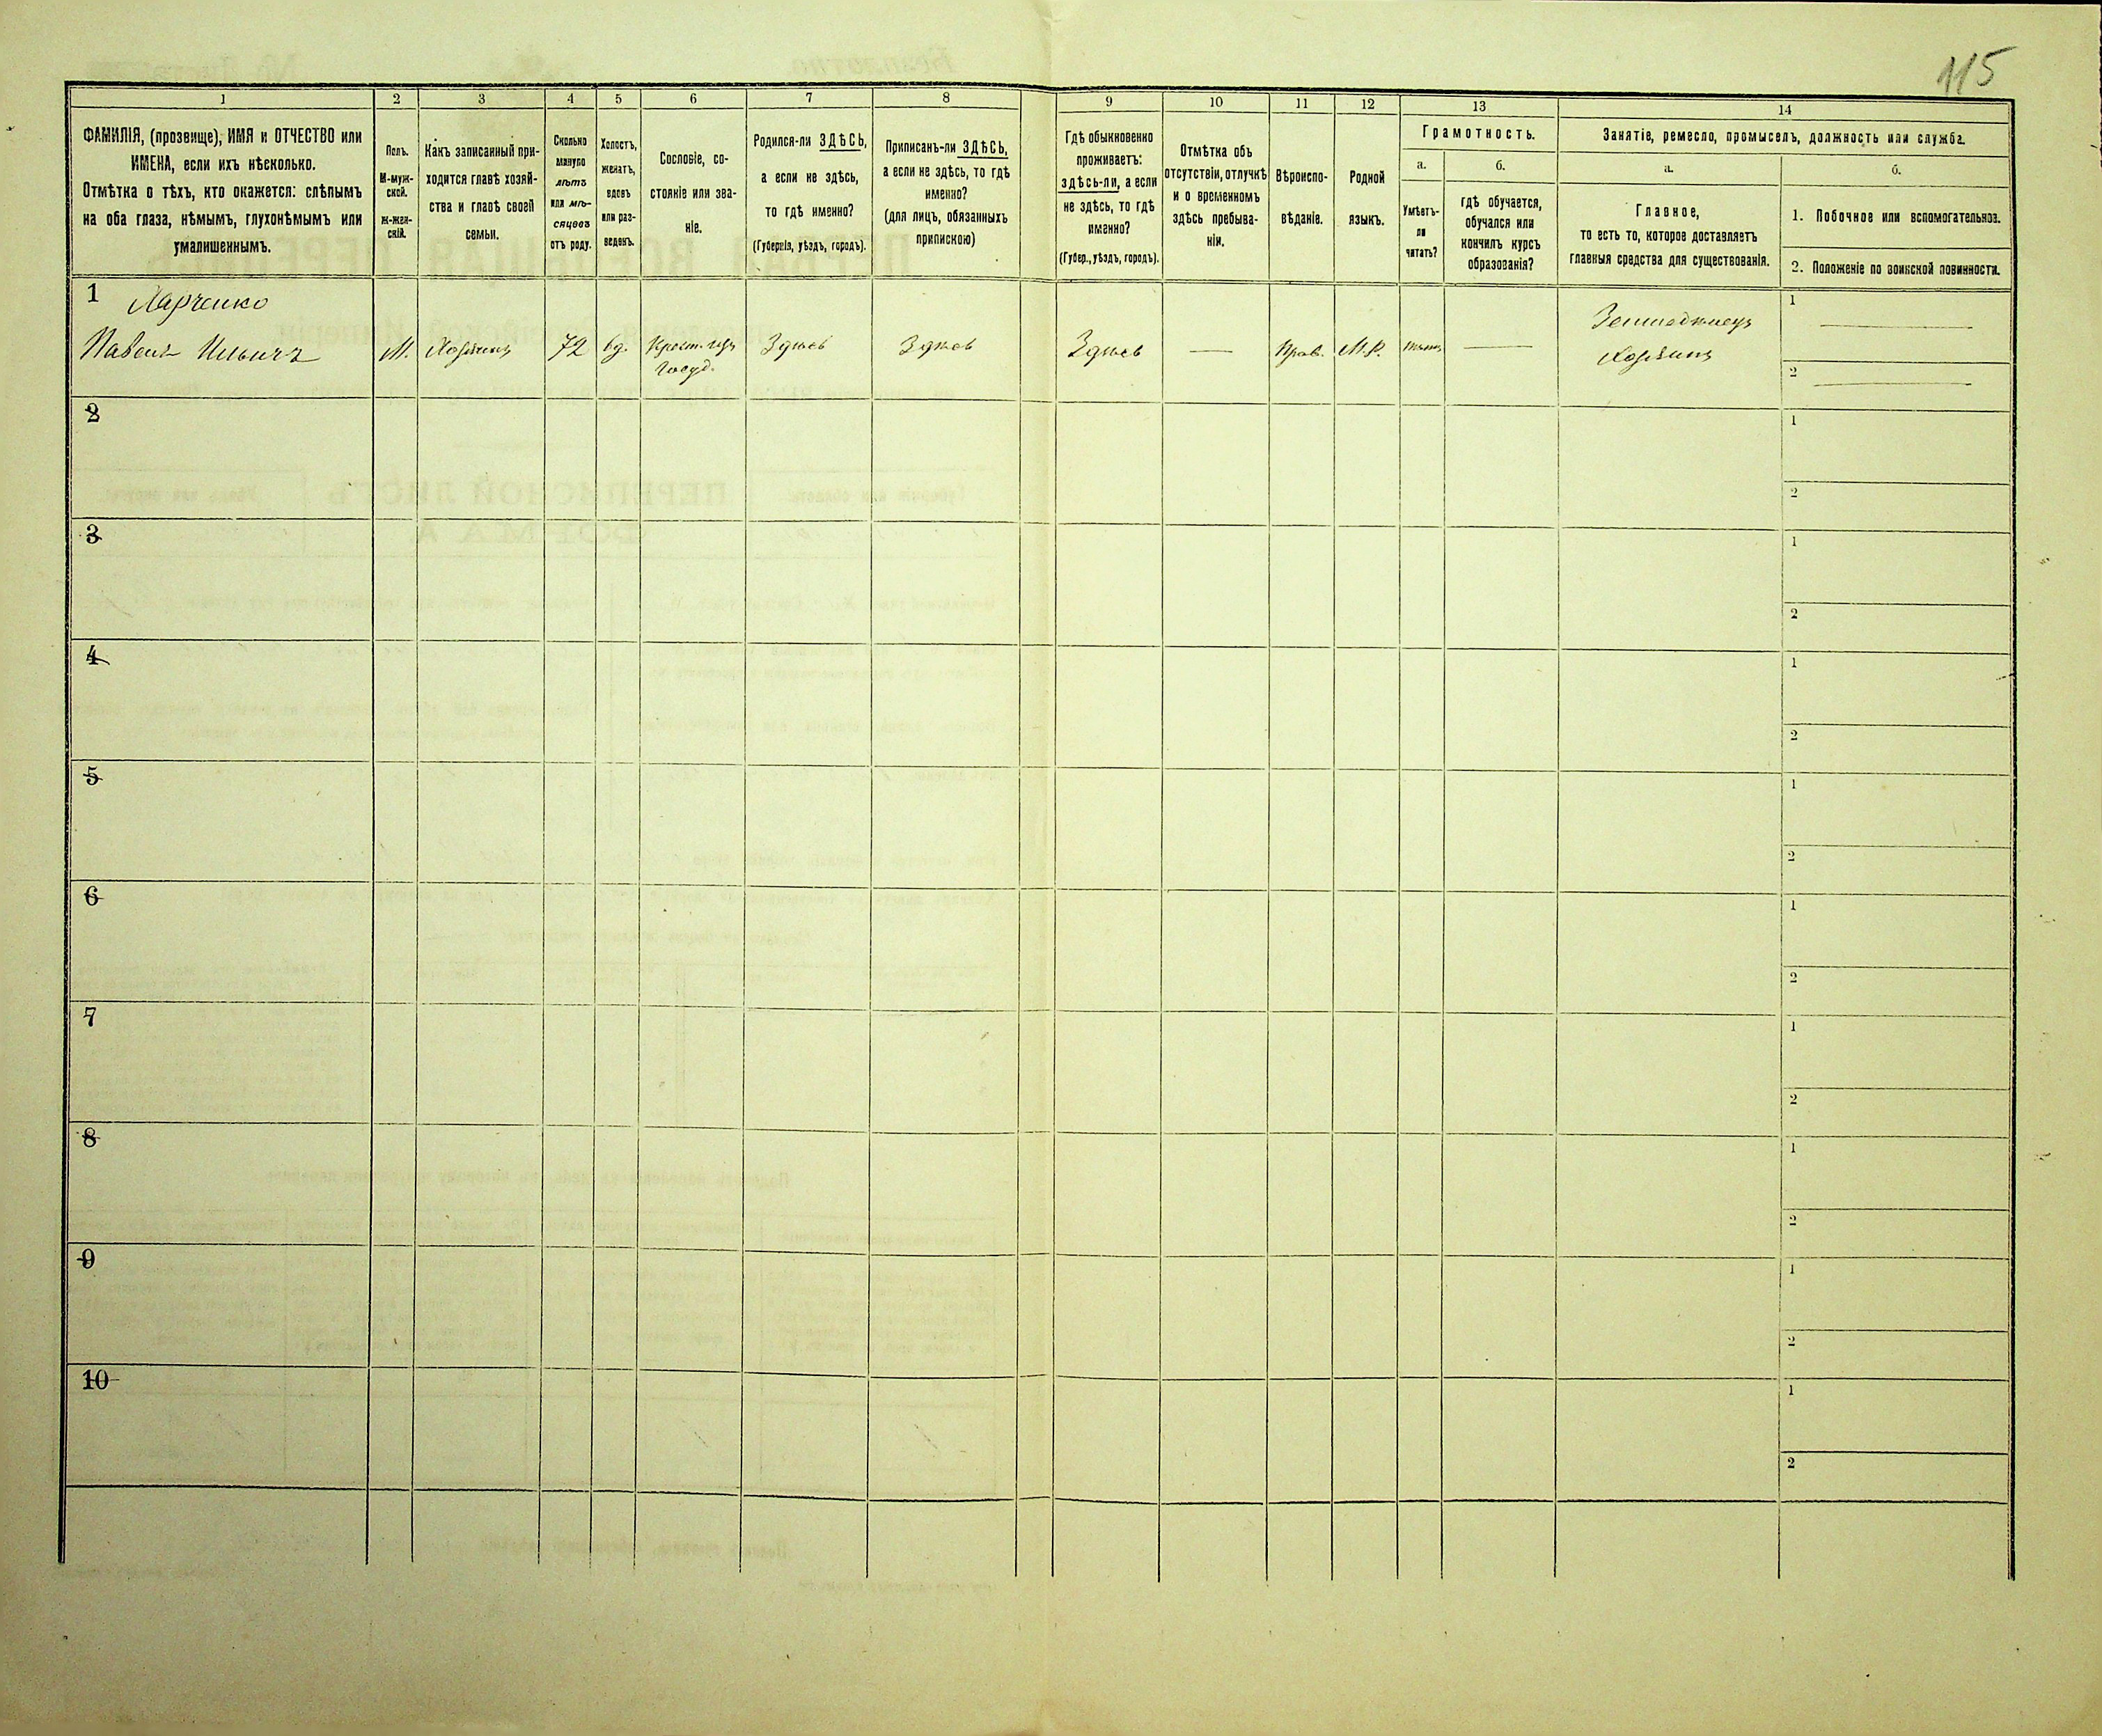 115
1 2 3 4 5 6 7 8 9 10 11 12 13 14
ФАМИЛІЯ, (прозвище), ИМЯ и ОТЧЕСТВО или
ИМЕНА, если ихъ нѣсколько.
Отмѣтка о тѣхъ, кто окажется: слѣпымъ
на оба глаза, нѣмымъ, глухонѣмымъ или
умалишеннымъ.
Полъ.
М-муж-
ской.
Ж-жен-
скій.
Какъ записанный при-
ходится главѣ хозяй-
ства и главѣ своей
семьи.
Сколько
минуло
лѣтъ
или мѣ-
сяцевъ
отъ роду.
Холостъ,
женатъ,
вдовъ
или раз-
веденъ.
Сословіе, со-
стояніе или зва-
ніе.
Родился-ли ЗДѢСЬ,
а если не здѣсь,
то гдѣ именно?
(Губернія, уѣздъ, городъ).
Приписанъ-ли ЗДѢСЬ,
а если не здѣсь, то гдѣ
именно?
(для лицъ, обязанныхъ
припискою)
Гдѣ обыкновенно
проживаетъ:
здѣсь-ли, а если
не здѣсь, то гдѣ
именно?
(Губер., уѣздъ, городъ).
Отмѣтка объ
отсутствіи, отлучкѣ
и о временномъ
здѣсь пребыва-
ніи.
Вѣроиспо-
вѣданіе.
Родной
языкъ.
Грамотность.
а.
Умѣетъ-
ли
читать?
б.
гдѣ обучается,
обучался или
кончилъ курсъ
образованія?
Занятіе, ремесло, промыселъ, должность или служба.
а.
Главное,
то есть то, которое доставляетъ
главныя средства для существованія.
б.
1. Побочное или вспомогательное.
2. Положеніе по воинской повинности.
1 Харченко
Павелъ Ильичъ М. Хозяинъ 72 вд. Крест. изъ Здѣсь Здѣсь Здѣсь — Прав. М.Р. нѣтъ —
Госуд.
Земледѣлецъ
Хозяинъ
1 —
2 —
2
1
2
3
1
2
4
1
2
5
1
2
6
1
2
7
1
2
8
1
2
9
1
2
10
1
2